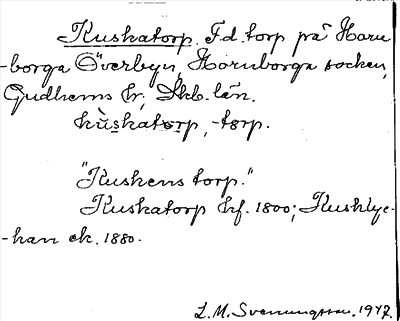 Kuskatorp. F.d. torp på Horn-
-borga Överbyn, Hornborga socken,
Gudhems hr; Skb. län.
kùskatɔrp, -tɔrp.
"Kuskens torp."
Kuskatorp hf. 1800; Kusklyc-
-kan ek. 1880.
L.M. Svenungsson. 1947.